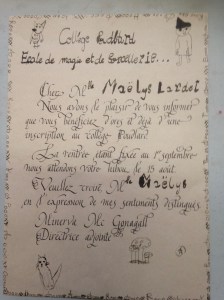 Collège Poudlard
Ecole de magie et de sorcellerie...
Cher Mlle Maëlys Lardot
Nous avons le plaisir de vous informer
que vous bénéficiez d'ors et déjà d'une
inscription au collège Poudlard.
La rentrée étant fixée au 1er septembre
nous attendons votre hibou, le 15 août.
Veuillez croire Mlle Maëlys
en l'expression de mes sentiments distingués
Minerva Mc Gonagall
Directrice adjointe